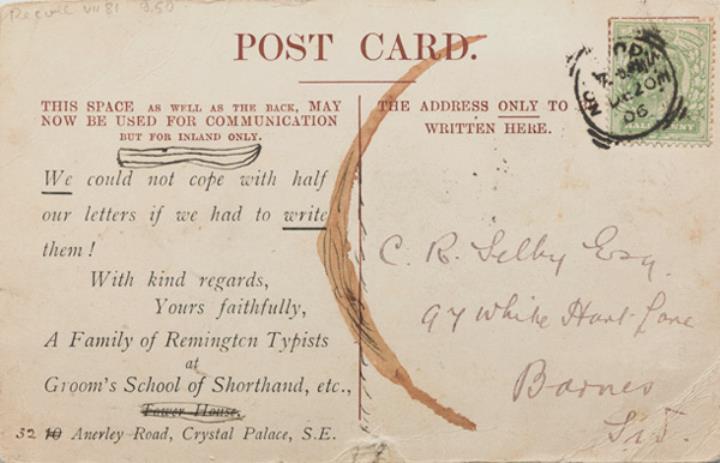 POST CARD.
THIS SPACE AS WELL AS THE BACK, MAY
NOW BE USED FOR COMMUNICATION
BUT FOR INLAND ONLY.
We could not cope with half
our letters if we had to write
them!
With kind regards,
Yours faithfully,
A Family of Remington Typists
at
Groom's School of Shorthand, etc.,
Tower House,
52 10 Anerley Road, Crystal Palace, S.E.
THE ADDRESS ONLY TO
WRITTEN HERE.
HALFPENNY
DE 20
06
C. R. Selby Esq.
97 White Hart Lane
Barnes